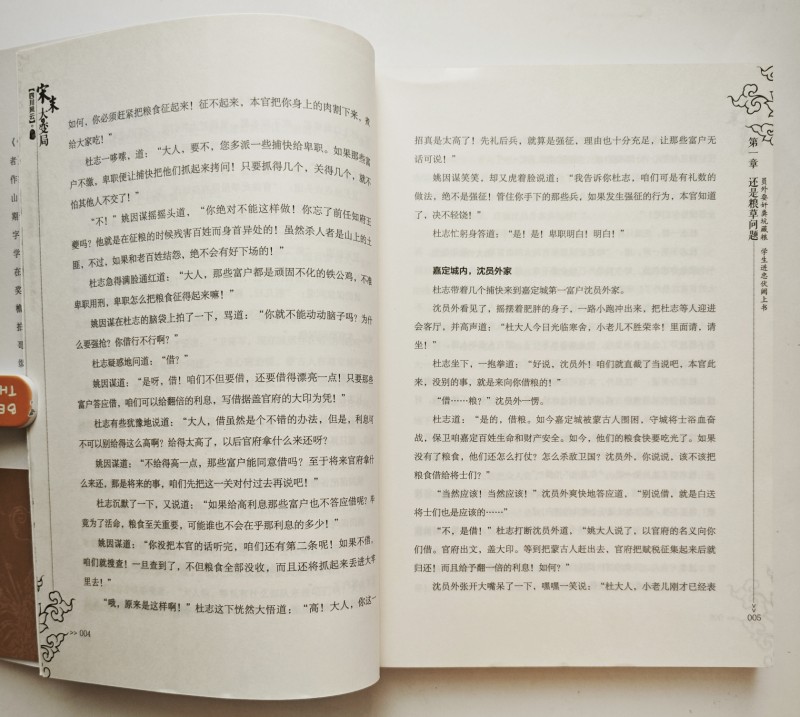 宋末大变局
如何，你必须赶紧把粮食征起来！征不起来，本官把你身上的肉割下来，煮
给大家吃！”
杜志一哆嗦，道：“大人，要不，您多派一些捕快给卑职。如果那些富
户不缴，卑职便让捕快把他们抓起来拷问！只要抓得几个，关得几个，就不
怕其他人不交了！”
“不！”姚因谋摇摇头道，“你绝对不能这样做！你忘了前任知府王
夔吗？他就是在征粮的时候残害百姓而身首异处的！虽然杀人者是山上的土
匪，不过，如果和老百姓结怨，绝不会有好下场的！”
杜志急得满脸通红道：“大人，那些富户都是顽固不化的铁公鸡，不准
卑职用刑，卑职怎么把粮食征得起来嘛！”
姚因谋在杜志的脑袋上拍了一下，骂道：“你就不能动动脑子吗？为什
么要强抢？你借行不行啊？”
杜志疑惑地问道：“借？”
姚因谋道：“是呀，借！咱们不但要借，还要借得漂亮一点！只要那些
富户答应借，咱们可以给翻倍的利息，写借据盖官府的大印为凭！”
杜志有些犹豫地说道：“大人，借虽然是个不错的办法，但是，利息可
不可以别给得这么高啊？给得太高了，以后官府拿什么来还呀？
姚因谋道：“不给得高一点，那些富户能同意借吗？至于将来官府拿什
么来还，那是将来的事，咱们先把这一关对付过去再说吧！”
杜志沉默了一下，又说道：“如果给高利息那些富户也不答应借呢？毕
竟为了活命，粮食至关重要，可能谁也不会在乎那利息的多少！”
姚因谋道：“你没把本官的话听完，咱们还有第二条呢！如果不借，
咱们就搜查！一旦查到了，不但粮食全部没收，而且还将抓起来丢进大牢
里去！”
“哦，原来是这样啊！”杜志这下恍然大悟道：“高！大人，你这一
>> 004
招真是太高了！先礼后兵，就算是强征，理由也十分充足，让那些富户无
话可说！”
姚因谋笑笑，却又虎着脸说道：“我告诉你杜志，咱们可是有礼数的
做法，绝不是强征！管住你手下的那些兵，如果发生强征的行为，本官知道
了，决不轻饶！”
杜志忙躬身答道：“是！是！卑职明白！明白！”
嘉定城内，沈员外家
杜志带着几个捕快来到嘉定城第一富户沈员外家。
沈员外看见了，摇摆着肥胖的身子，一路小跑出来，把杜志等人迎进
会客厅，并高声道：“杜大人今日光临寒舍，小老儿不胜荣幸！里面请，请
坐！”
杜志坐下，一抱拳道：“好说，沈员外！咱们就直截了当说吧，本官此
来，没别的事，就是来向你借粮的！”
“借……粮？”沈员外一愣。
杜志道：“是的，借粮。如今嘉定城被蒙古人围困，守城将士浴血奋
战，保卫咱嘉定百姓生命和财产安全。如今，他们的粮食快要吃光了。如果
没有了粮食，他们还怎么打仗？怎么杀敌卫国？沈员外，你说说，该不该把
粮食借给将士们？”
“当然应该！当然应该！”沈员外爽快地答应道，“别说借，就是白送
将士们也是应该的……”
“不，是借！”杜志打断沈员外道，“姚大人说了，以官府的名义向你
们借。官府出文，盖大印。等到把蒙古人赶出去，官府把赋税征集起来后就
归还！而且给予翻一倍的利息！如何？”
沈员外张开大嘴呆了一下，嘿嘿一笑说：“杜大人，小老儿刚才已经表
第一章 还是粮草问题
员外耍奸粪坑藏粮 学生进忠伏阙上书
005